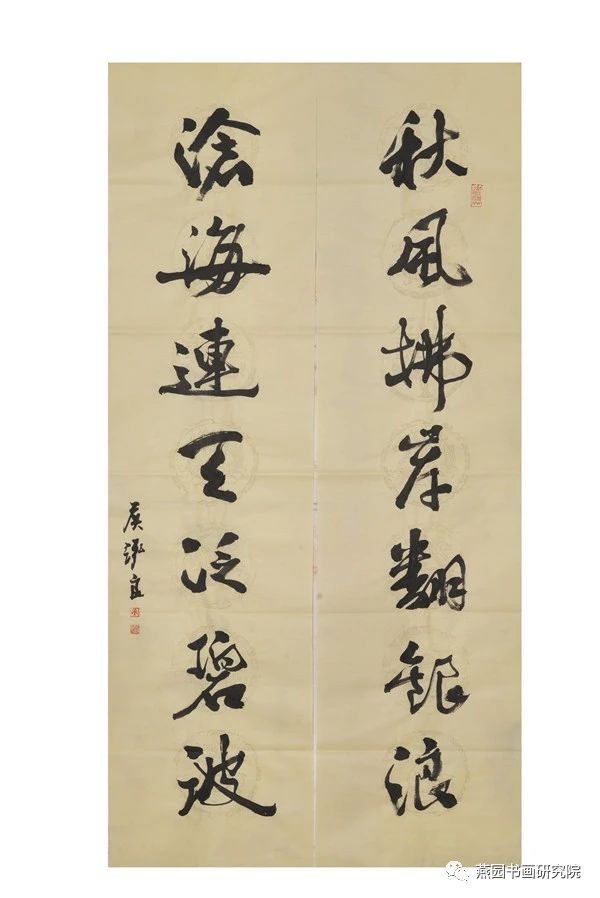 秋風拂岸翻銀浪
滄海連天泛碧波
燕园书画研究院